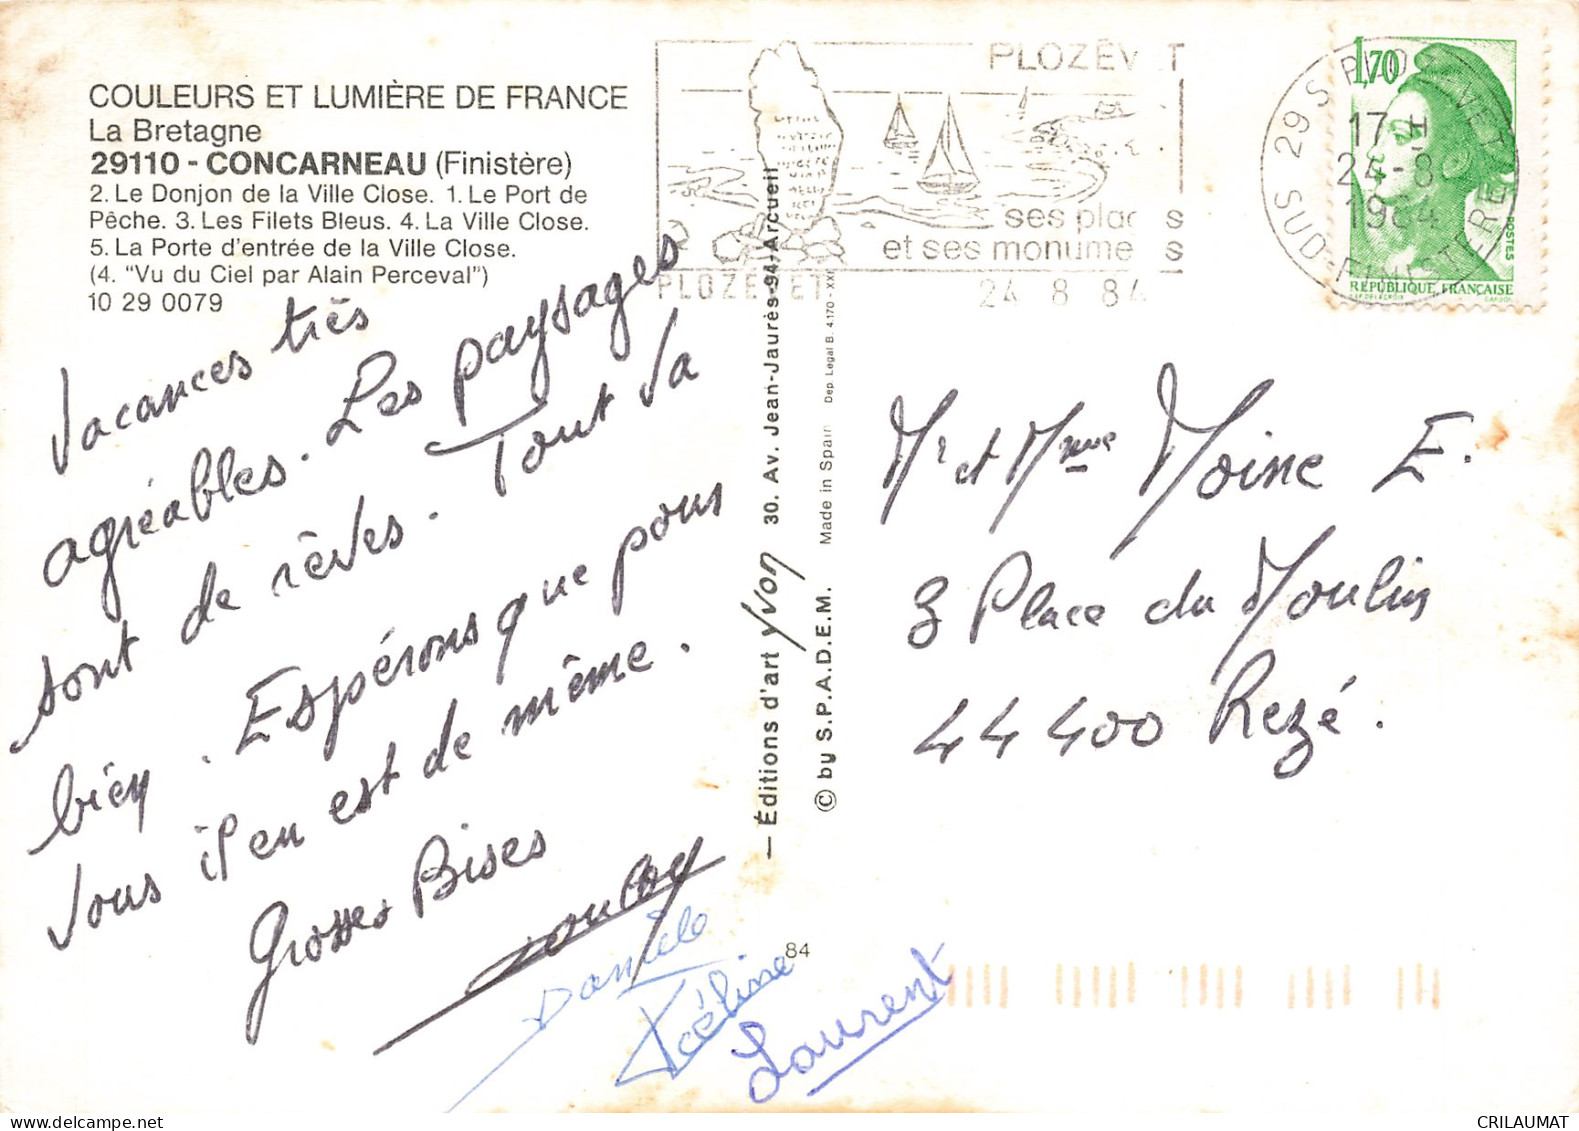 COULEURS ET LUMIÈRE DE FRANCE
La Bretagne
29110 - CONCARNEAU (Finistère)
2. Le Donjon de la Ville Close. 1. Le Port de
Pêche. 3. Les Filets Bleus. 4. La Ville Close.
5. La Porte d'entrée de la Ville Close.
(4. "Vu du Ciel par Alain Perceval")
10 29 0079
Vacances très
agréables. Les paysages
sont de rêves. Tout va
bien. Espérons que pour
vous il en est de même.
Grosses Bises
Danièle
Céline
Laurent
84
— Éditions d'art Yvon 30. Av. Jean-Jaurès-94-Arcueil
© by S.P.A.D.E.M. Made in Spain Dep. Legal B. 4.170-XXI
PLOZÉVET
ses plages
et ses monuments
PLOZEVET 24 8 84
29 S PLOZEVET
17 H
24-8
1984
SUD-FINISTERE
1,70
POSTES
RÉPUBLIQUE FRANÇAISE
Mr et Mme Moine E.
8 Place du Moulin
44400 Rezé.
CRILAUMAT